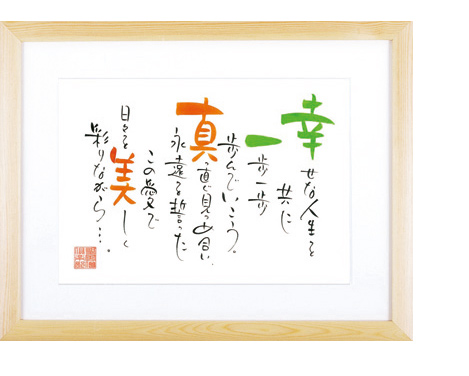 幸せな人生を
共に
一歩一歩
歩んでいこう。
真っ直ぐ見つめ合い、
永遠を誓った
この愛で
日々を美しく
彩りながら…。